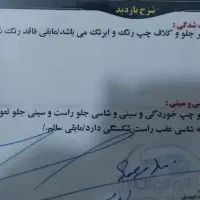 شرح بازدید
شدگی :
جلو و کلاف چپ رنگ و ایرنگ می باشد/مابقی فاقد رنگ
سی و سینی :
و چپ خوردگی و سینی و شاسی جلو راست و سینی جلو تعو
شاسی عقب راست شکستگی دارد/مابقی سالم./